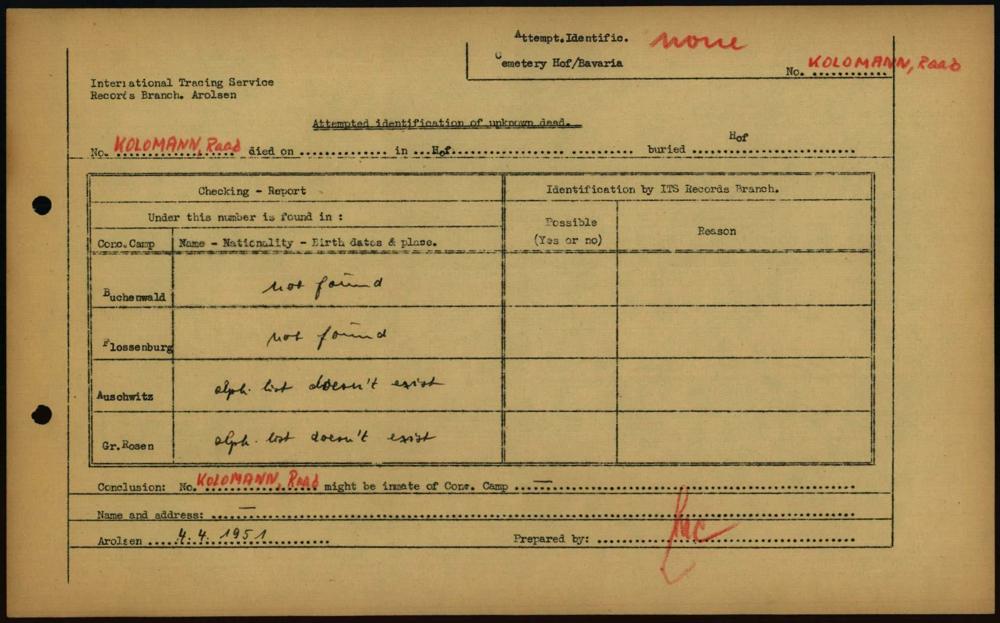 Attempt.Identific. none
Cemetery Hof/Bavaria
No. ............ KOLOMANN, Raab
International Tracing Service
Records Branch. Arolsen
Attempted identification of unknown dead.
No. KOLOMANN, Raab died on ............. in ...Hof............... .......... buried Hof
Checking - Report
Identification by ITS Records Branch.
Under this number is found in :
Possible
(Yes or no)
Reason
Conc.Camp
Name - Nationality - Birth dates & place.
Buchenwald
not found
Flossenburg
not found
Auschwitz
alph. list doesn't exist
Gr.Rosen
alph. list doesn't exist
Conclusion: No. KOLOMANN, Raab might be inmate of Conc. Camp ... — ...
Name and address: ... — ...
Arolsen .... 4.4. 1951 ...........
Prepared by: ...........